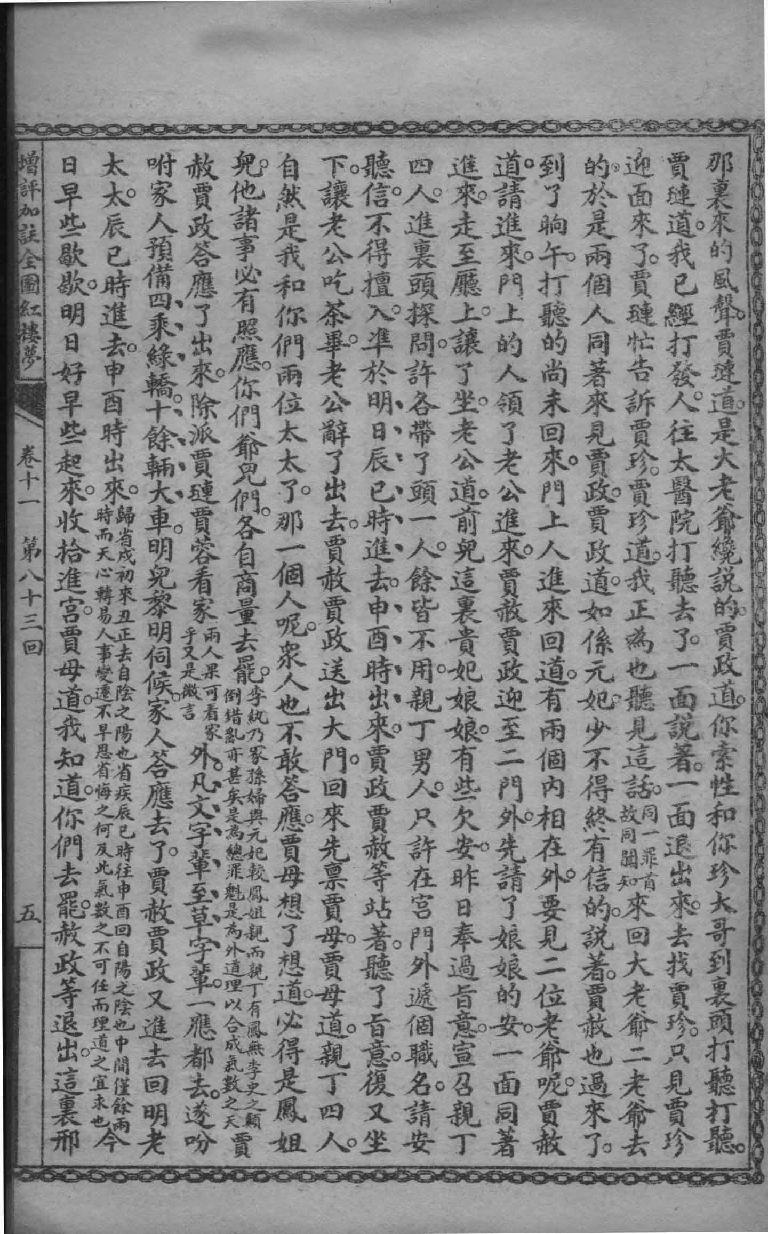 那裏來的風聲。賈璉道。是大老爺纔說的。賈政道。你索性和你珍大哥到裏頭打聽打聽。
賈璉道。我已經打發人往太醫院打聽去了。一面說著。一面退出來。去找賈珍。只見賈珍
迎面來了。賈璉忙告訴賈珍。賈珍道。我正為也聽見這話。同一罪首故同聞知來回大老爺二老爺去
的。於是兩個人同著來見賈政。賈政道。如係元妃。少不得終有信的。說著。賈赦也過來了。
到了晌午。打聽的尚未回來。門上人進來回道。有兩個內相在外。要見二位老爺呢。賈赦
道。請進來。門上的人領了老公進來。賈赦賈政迎至二門外。先請了娘娘的安。一面同著
進來。走至廳上。讓了坐。老公道。前兒這裏貴妃娘娘。有些欠安。昨日奉過旨意。宣召親丁
四人。進裏頭探問。許各帶丫頭一人。餘皆不用。親丁男人。只許在宮門外遞個職名。請安
聽信。不得擅入。準於明日辰巳時進去。申酉時出來。賈政賈赦等站著。聽了旨意。復又坐
下。讓老公吃茶畢。老公辭了出去。賈赦賈政送出大門。回來先稟賈母。賈母道。親丁四人。
自然是我和你們兩位太太了。那一個人呢。眾人也不敢答應。賈母想了想道。必得是鳳姐
兒。他諸事必有照應。你們爺兒們。各自商量去罷。李紈乃冢孫婦與元妃較鳳姐親而親丁有鳳無李史之顛倒錯亂亦甚矣是為總罪魁是為外道理以合成氣數之天賈
赦賈政答應了出來。除派賈璉賈蓉看家兩人果可看家乎又是微言外。凡文字輩至草字輩。一應都去。遂吩
咐家人預備四乘綠轎。十餘輛大車。明兒黎明伺候。家人答應去了。賈赦賈政又進去回明老
太太。辰巳時進去。申酉時出來。歸省戌初來丑正去自陰之陽也省疾辰巳時往申酉回自陽之陰也中間僅餘兩時而天心轉易人事變遷不早思省悔之何及此氣數之不可任而理道之宜求也今
日早些歇歇。明日好早些起來。收拾進宮。賈母道。我知道。你們去罷。赦政等退出。這裏邢
增評加註全圖紅樓夢 卷十一 第八十三回 五